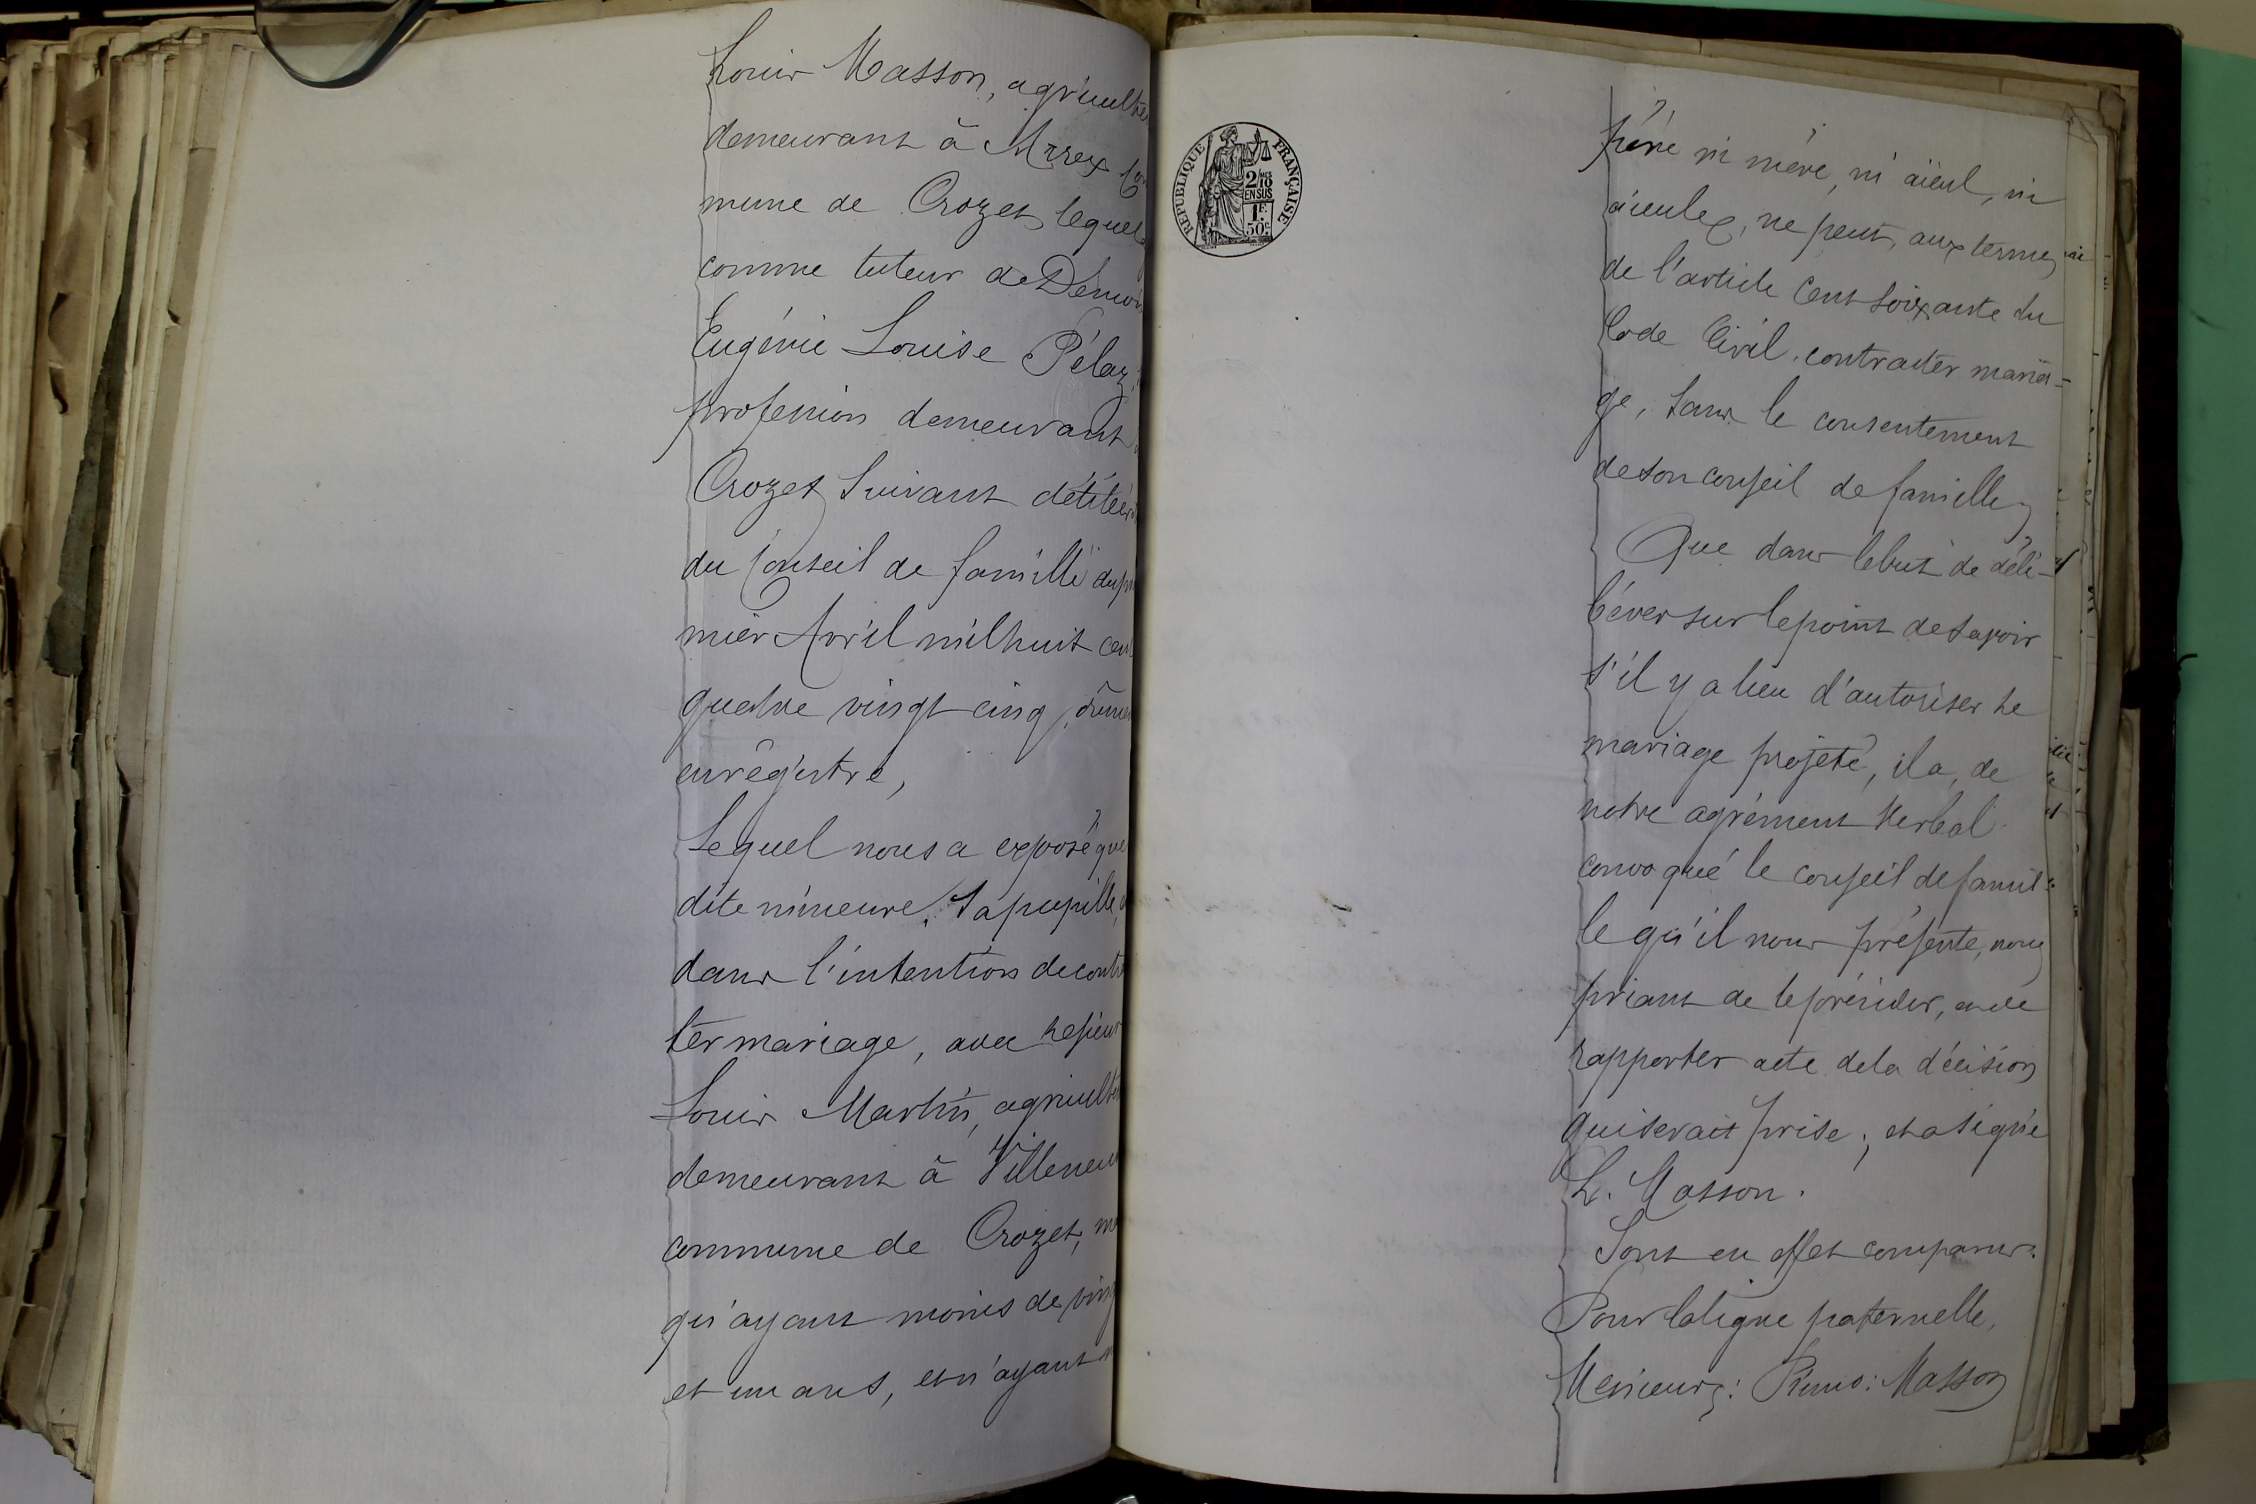 Louis Masson, agriculte
demeurant à Avrex Com
mune de Crozet, lequel
comme tuteur de Demois
Eugénie Louise Pélaz,
profession demeurant
Crozet suivant délibér
du Conseil de famille du pr
mier Avril mil huit cent
quatre vingt cinq, dûme
enrégistré,
Lequel nous a exposé que
dite mineure, sa pupille,
dans l'intention de contr
ter mariage, avec le sieur
Louis Martin, agriculte
demeurant à Villeneu
commune de Crozet, m
qu'ayant moins de ving
et un ans, et n'ayant
REPUBLIQUE FRANÇAISE
2/10 EN SUS
1F.
50c
père ni mère, ni aïeul, ni
aïeules, ne peut, aux termes
de l'article Cent soixante du
Code Civil, contracter maria-
ge, sans le consentement
de son conseil de famille,
Que dans le but de déli-
bérer sur le point de savoir
s'il y a lieu d'autoriser le
mariage projeté, il a, de
notre agrément verbal
convoqué le conseil de famil-
le qu'il nous présente, nous
priant de le présider, et de
rapporter acte de la décision
qui serait prise; et a signé
L. Masson.
Sont en effet comparus:
Pour la ligne paternelle,
Messieurs: Primo: Masson